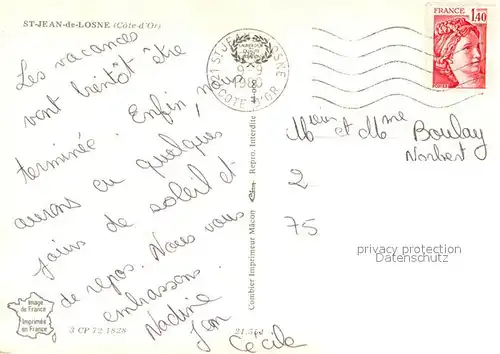 ST-JEAN-de-LOSNE (Côte-d'Or)
Les vacances
vont bientôt être
terminée. Enfin, nous
aurons eu quelques
jours de soleil et
de repos. Nous vous
embrassons.
Nadine
Jan
Cécile
21 ST-JE LOSNE
9-9
1980
COTE-D'OR
FRANCE
1,40
Mieur et Mme Boulay
Norbert
2
75
privacy protection
Datenschutz
Combier Imprimeur Mâcon
Repro. Interdite
Image
de France
Imprimée
en France
3 CP 72 1828